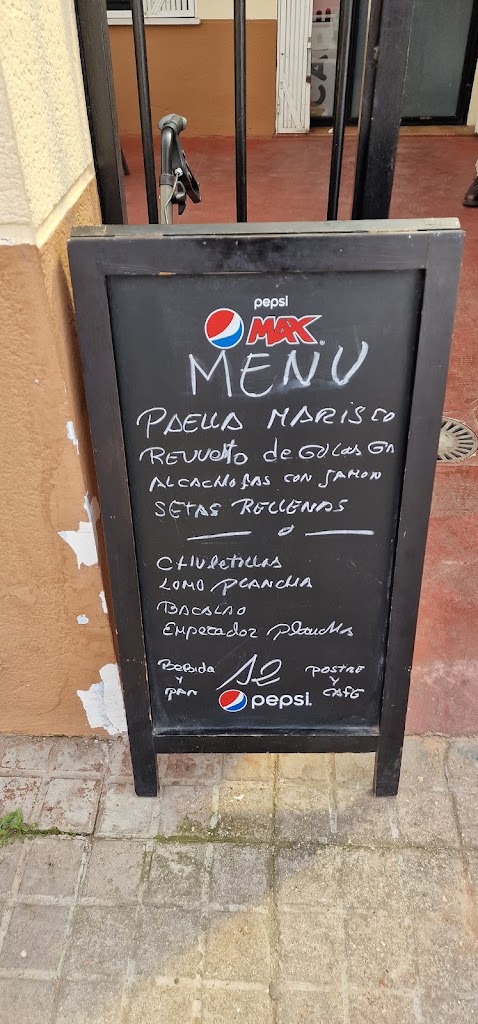 pepsi
MAX
MENU
PAELLA MARISCO
REVUELTO de GULAS
ALCACHOFAS CON JAMON
SETAS RELLENAS
CHULETILLAS
LOMO PLANCHA
BACALAO
EMPERADOR PLANCHA
BEBIDA Y PAN
POSTRE Y CAFE
pepsi.